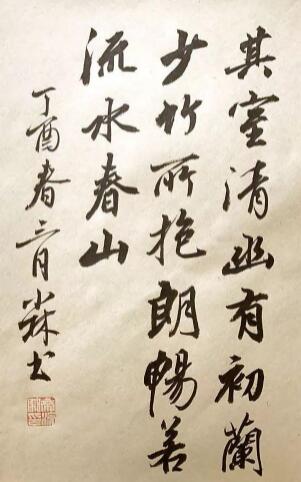 其室清幽有初蘭
少竹所抱朗暢若
流水春山
丁酉春三月 书